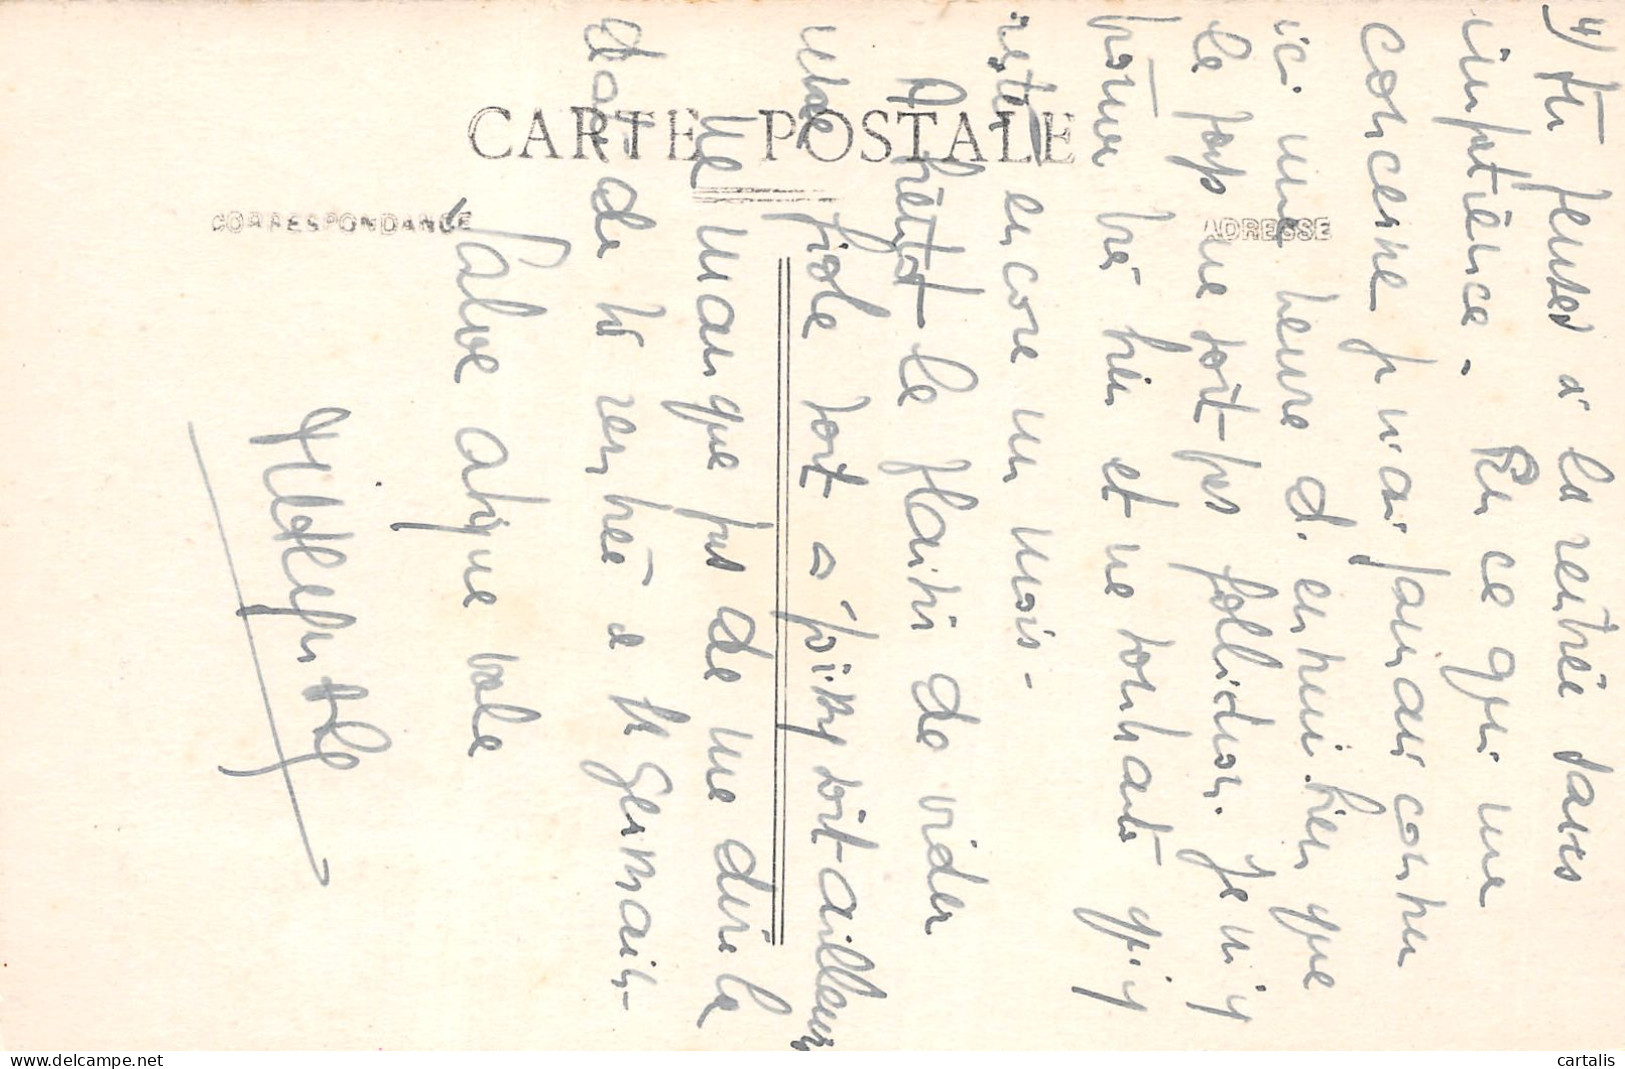 CARTE POSTALE
CORRESPONDANCE
ADRESSE
4) tu penses à la rentrée sans
impatience. En ce qui me
concerne je n'ai jamais connu
ici une heure d'ennui bien que
le pays ne soit pas folichon. Je m'y
trouve très bien et ne souhaite qu'y
rester encore un mois -
A bientôt le plaisir de vider
une fiole soit à Poissy soit ailleurs
Ne manque pas de me dire la
date de ta rentrée à St Germain -
Salve atque vale